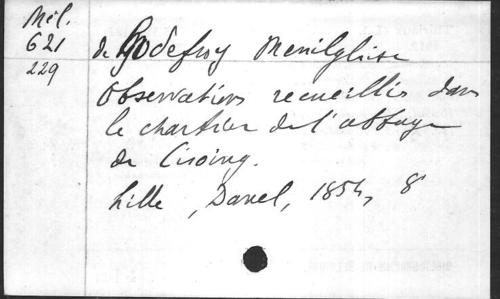 Mél.
621
229
de Godefroy Menilglaise
Observations recueillies dans
le chartrier de l'abbaye
de Cisoing.
Lille, Danel, 1854, 8